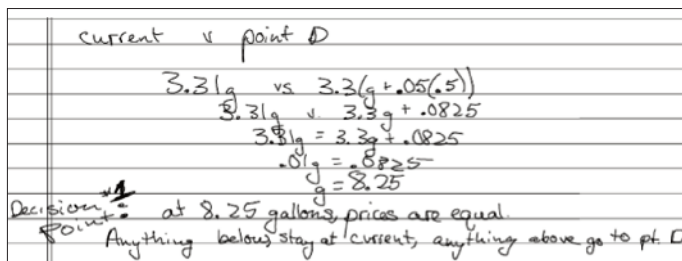 current v point D
3.31g vs 3.3(g + .05(.5))
3.31g v. 3.3g + .0825
3.31g = 3.3g + .0825
.01g = .0825
g = 8.25
Decision Point #1: at 8.25 gallons, prices are equal.
Anything below, stay at current, anything above go to pt. D